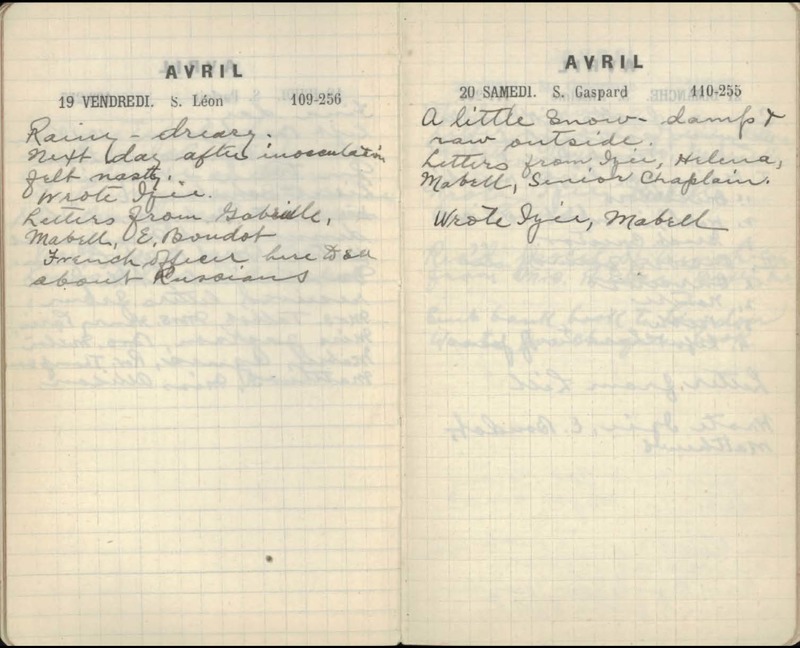 AVRIL
19 VENDREDI. S. Léon 109-256
Rainy - dreary.
Next day after inosculation
felt nasty.
Wrote Izie.
Letters from Gabrielle,
Mabell, E. Boudot
French officer here to see
about Russians
AVRIL
20 SAMEDI. S. Gaspard 110-255
A little snow - damp &
raw outside.
Letters from Izie, Helena,
Mabell, Senior Chaplain.
Wrote Izie, Mabell